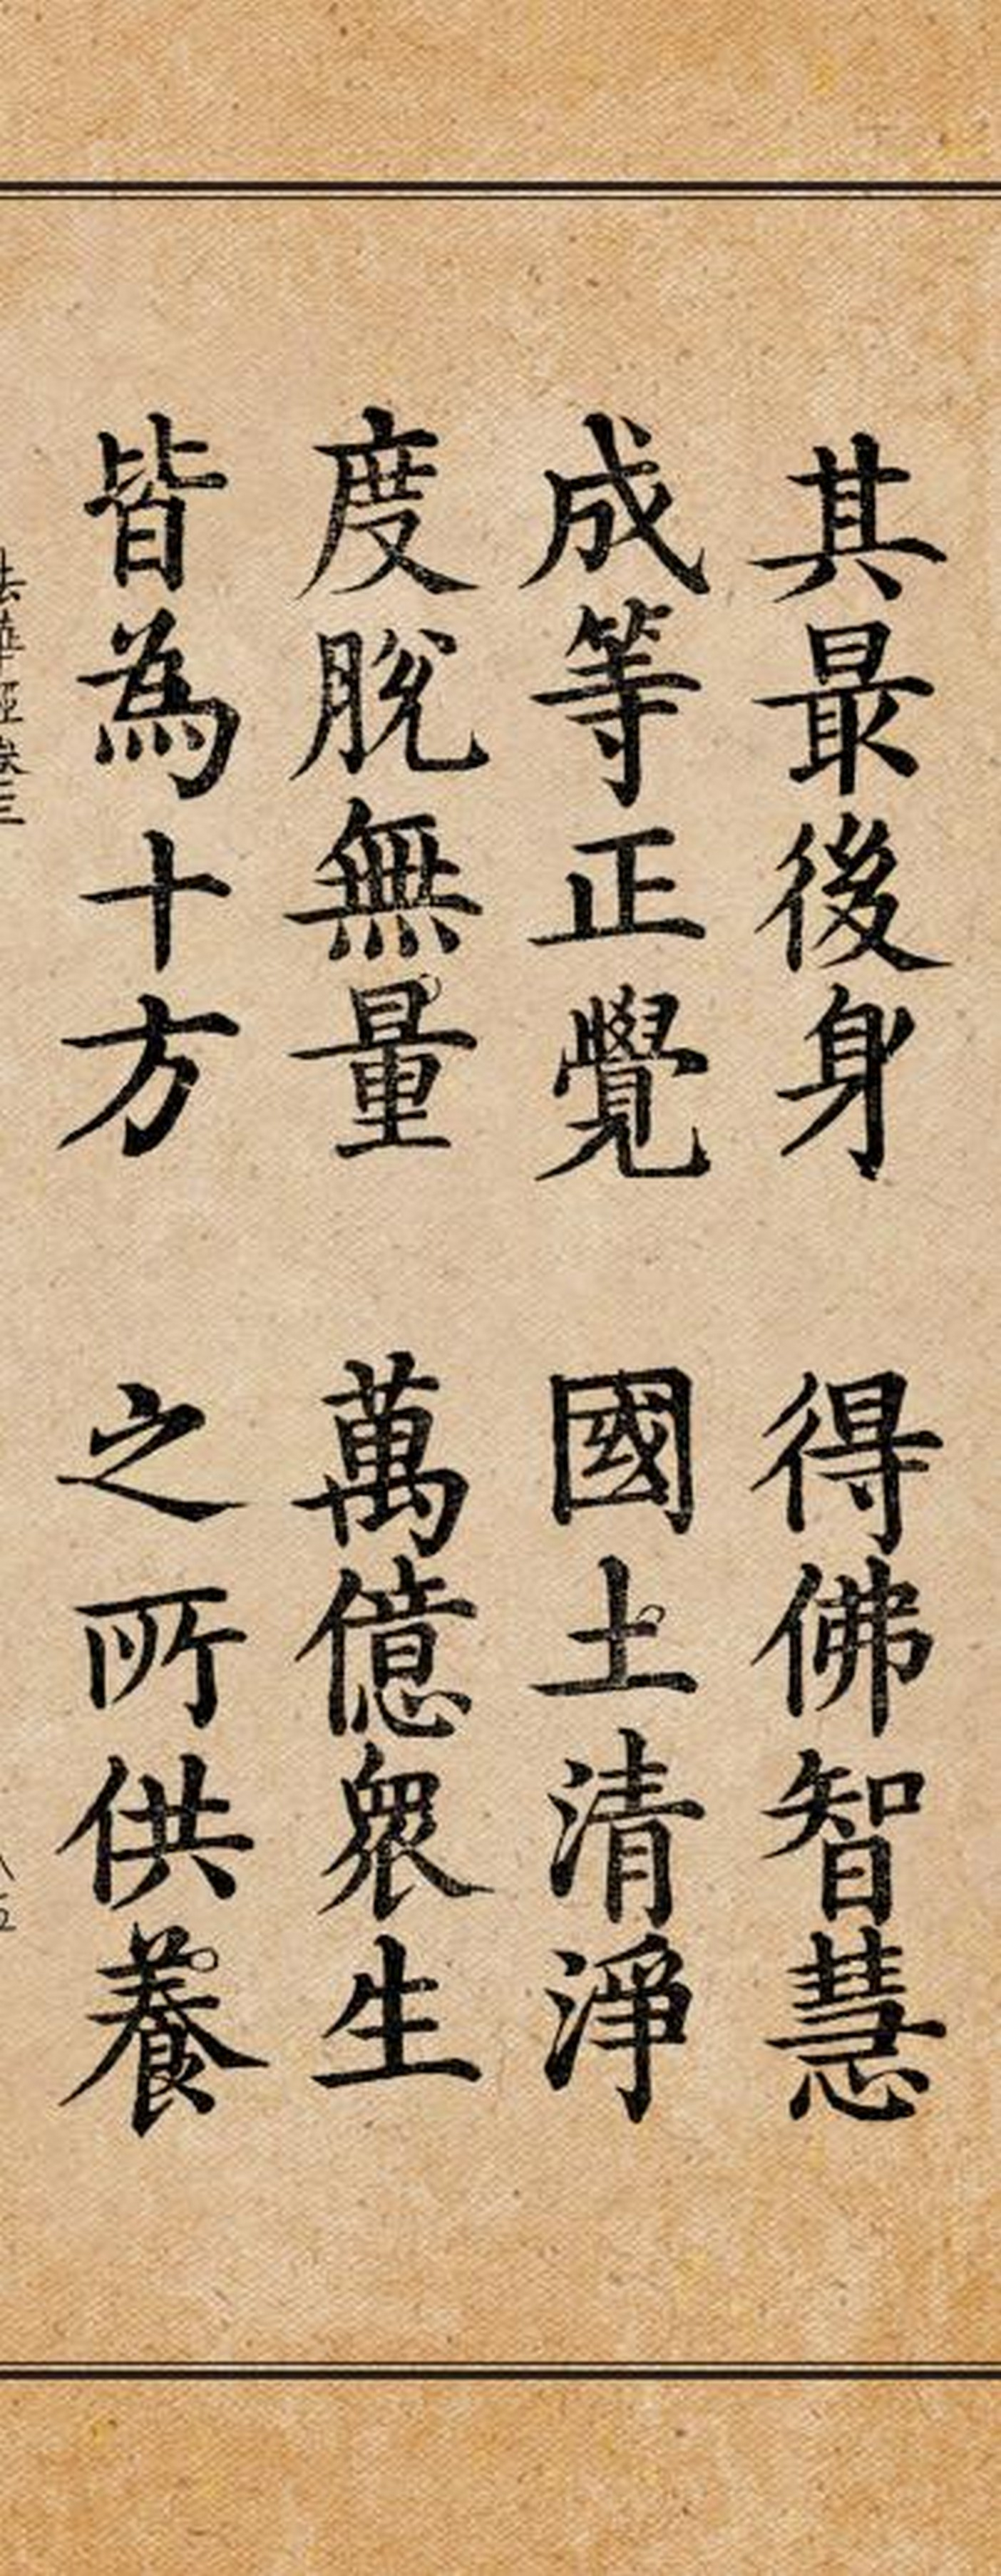 其最後身 得佛智慧
成等正覺 國土清淨
度脫無量 萬億眾生
皆為十方 之所供養
法華經卷三